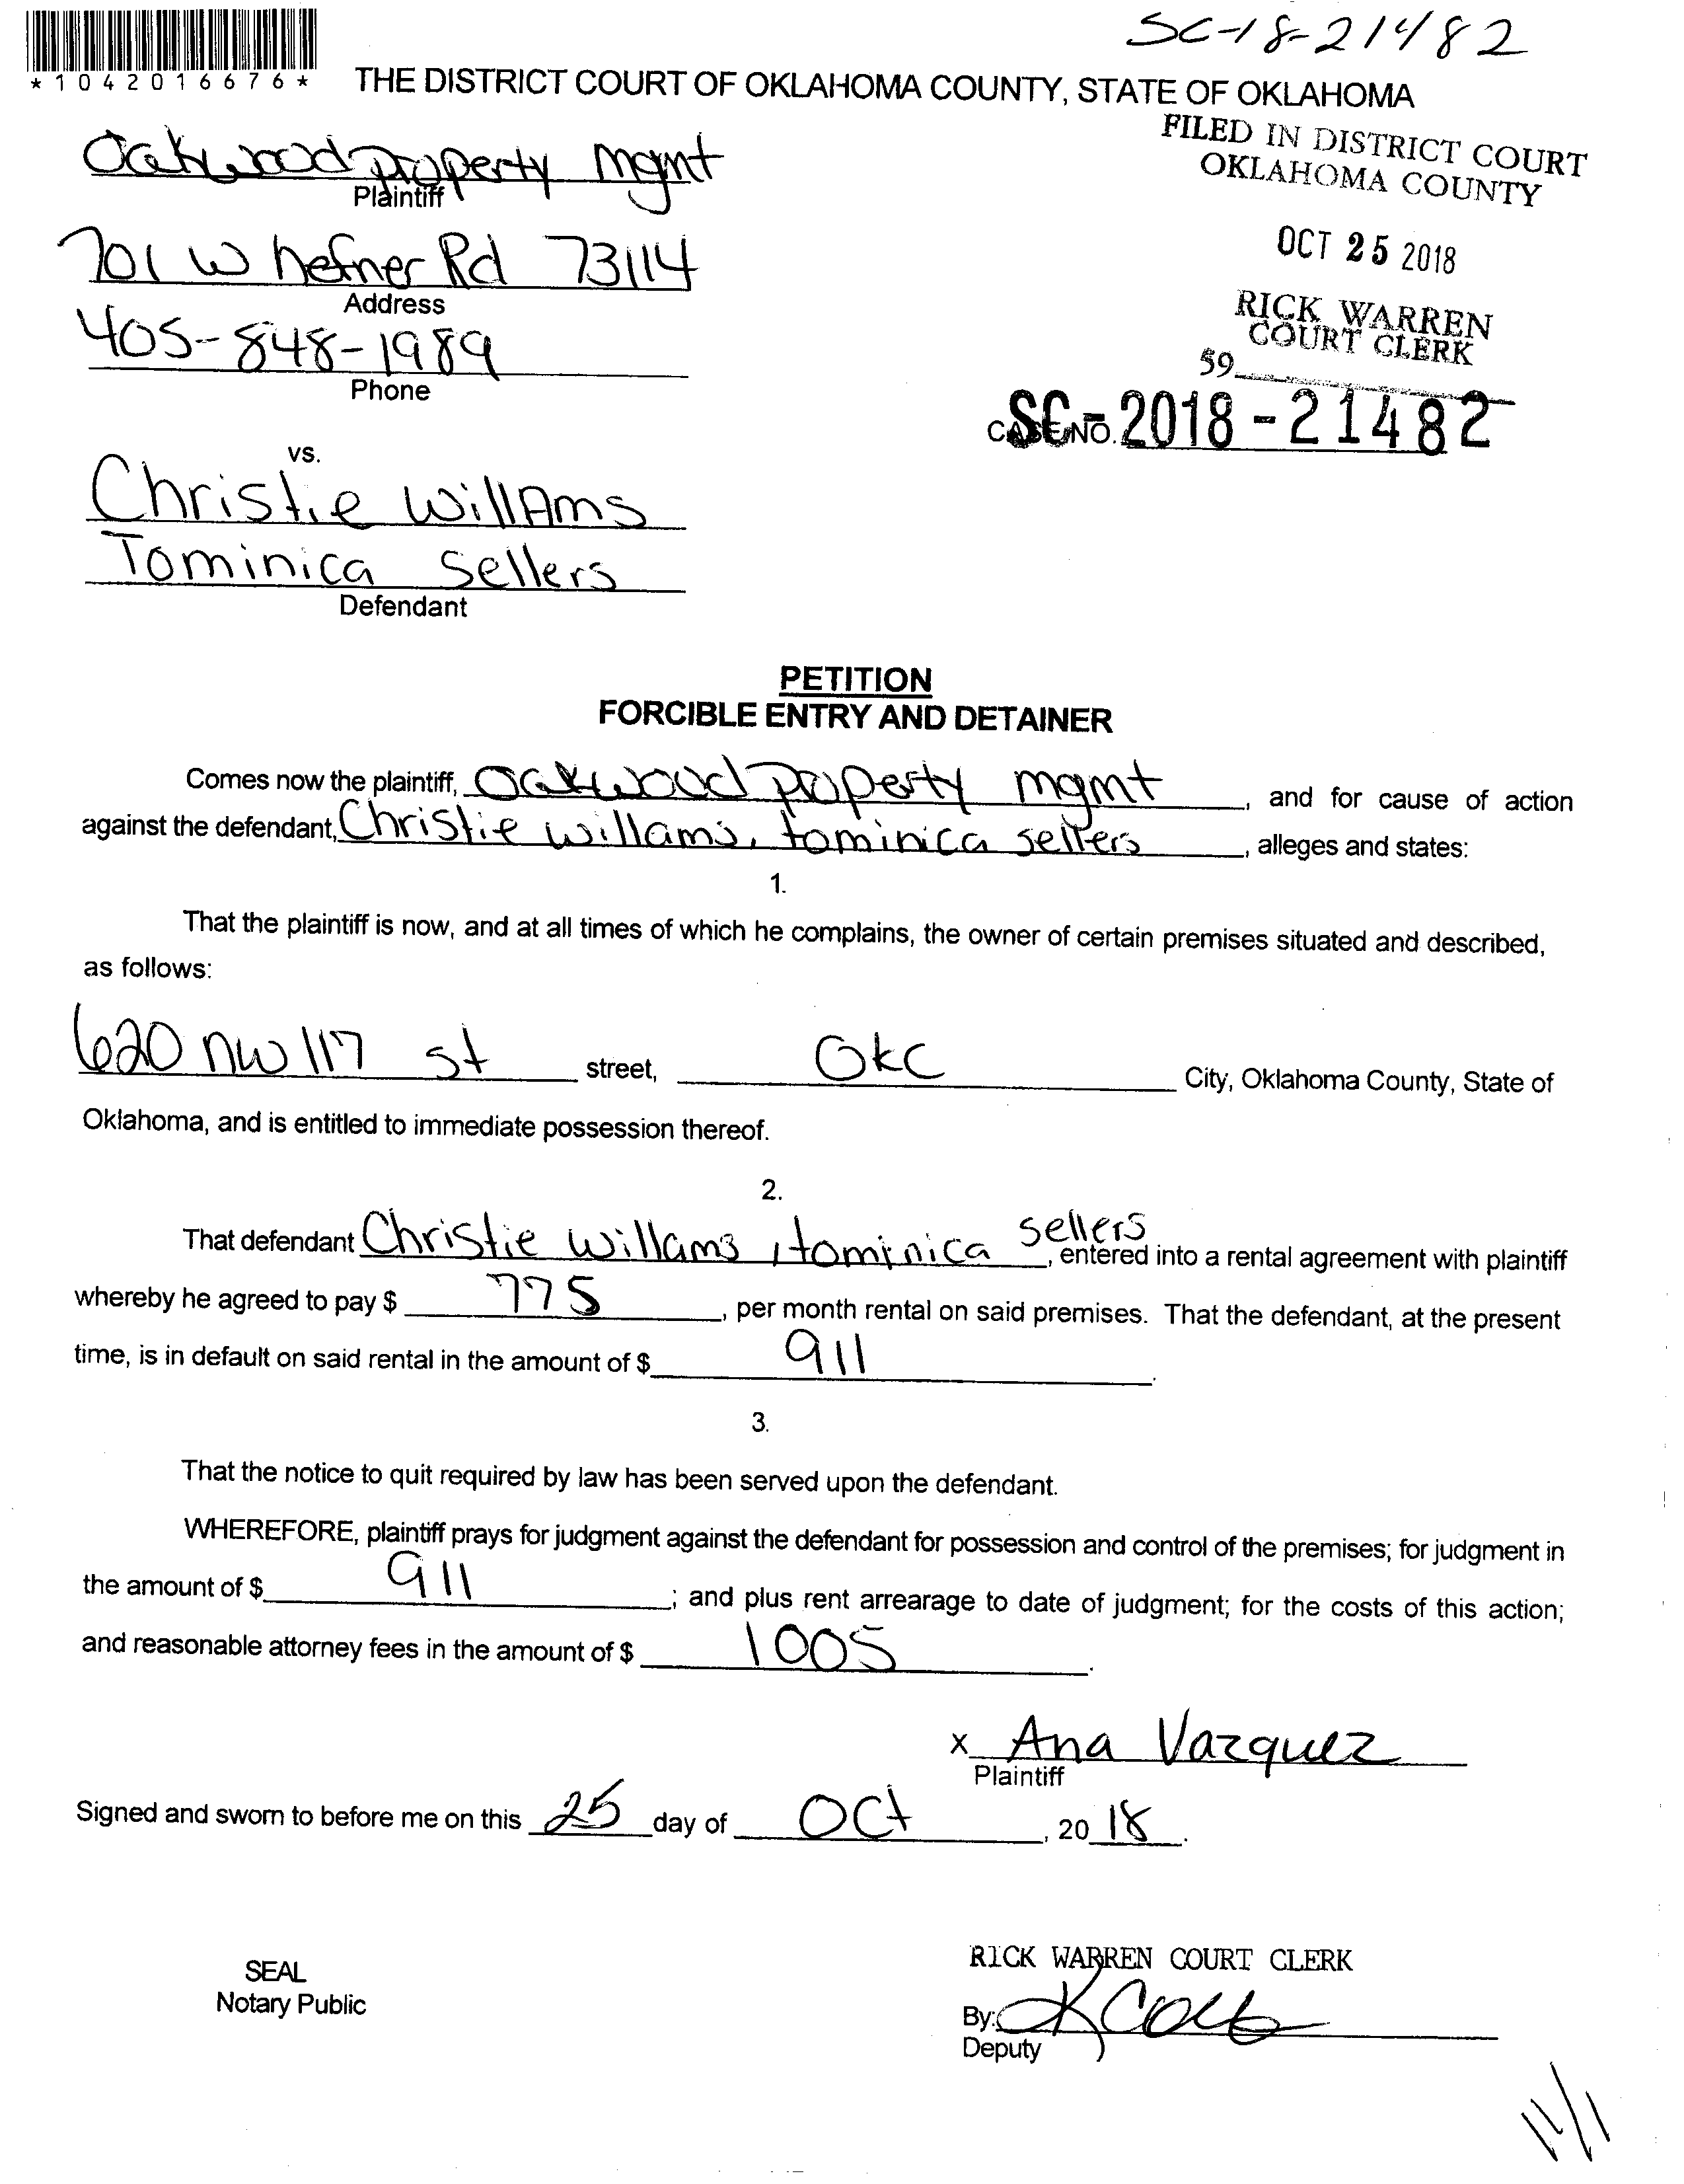 SC-18-21482
*1042016676*
THE DISTRICT COURT OF OKLAHOMA COUNTY, STATE OF OKLAHOMA
FILED IN DISTRICT COURT
OKLAHOMA COUNTY
OCT 25 2018
RICK WARREN
COURT CLERK
59
Oakwood property mgmt
Plaintiff
701 W hefner Rd 73114
Address
405-848-1989
Phone
CASE NO. SC-2018-21482
vs.
Christie WillAms
Tominica Sellers
Defendant
PETITION
FORCIBLE ENTRY AND DETAINER
Comes now the plaintiff, Oakwood property mgmt, and for cause of action
against the defendant, Christie willams, tominica sellers, alleges and states:
1.
That the plaintiff is now, and at all times of which he complains, the owner of certain premises situated and described,
as follows:
620 nw 117 st street, OKC City, Oklahoma County, State of
Oklahoma, and is entitled to immediate possession thereof.
2.
That defendant Christie willams, tominica sellers, entered into a rental agreement with plaintiff
whereby he agreed to pay $ 775, per month rental on said premises. That the defendant, at the present
time, is in default on said rental in the amount of $ 911.
3.
That the notice to quit required by law has been served upon the defendant.
WHEREFORE, plaintiff prays for judgment against the defendant for possession and control of the premises; for judgment in
the amount of $ 911; and plus rent arrearage to date of judgment; for the costs of this action;
and reasonable attorney fees in the amount of $ 1005.
x Ana Vazquez
Plaintiff
Signed and sworn to before me on this 25 day of Oct, 20 18.
SEAL
Notary Public
RICK WARREN COURT CLERK
By:
Deputy
11/1